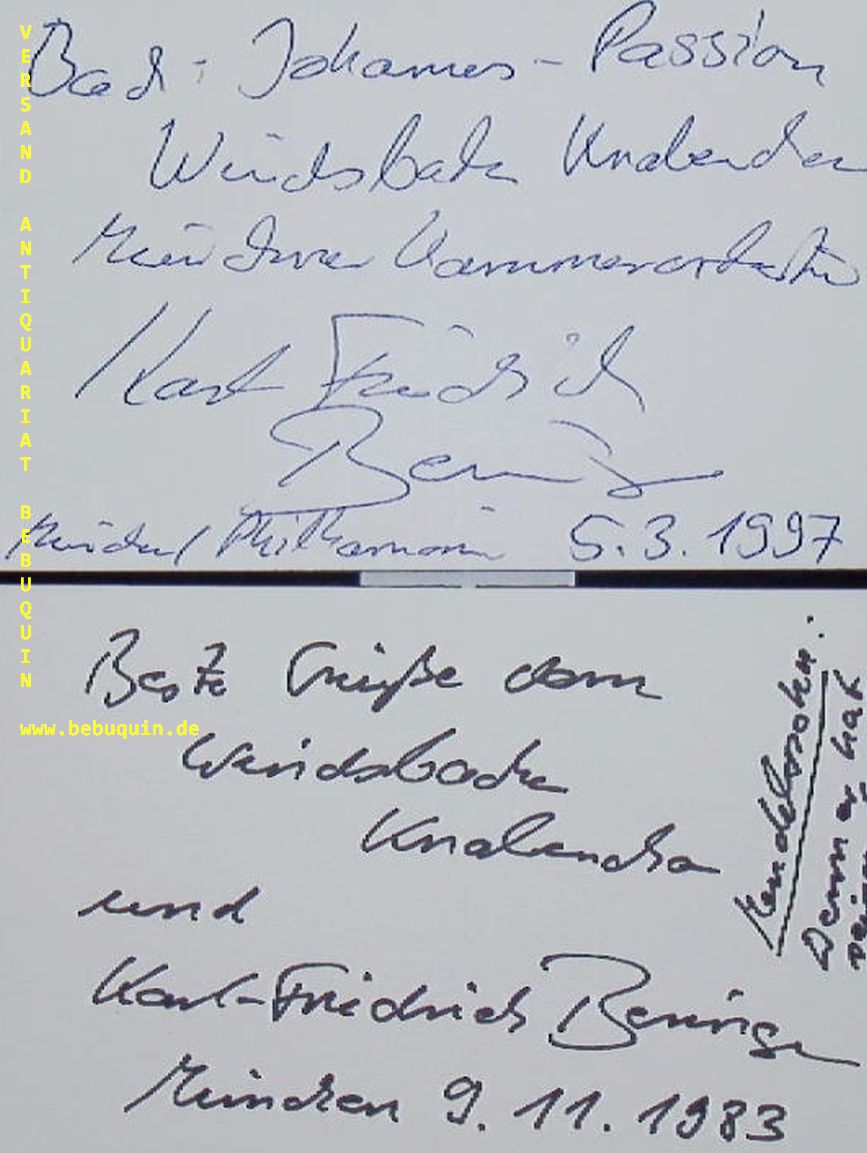 Bach: Johannes-Passion
Windsbacher Knabenchor
Münchner Kammerorchester
Karl Friedrich
Beringer
München / Philharmonie 5.3.1997
Beste Grüße vom
Windsbacher
Knabenchor
und
Karl-Friedrich Beringer
München 9.11.1983
Mendelssohn:
Denn er hat
VERSAND ANTIQUARIAT BEBUQUIN
www.bebuquin.de